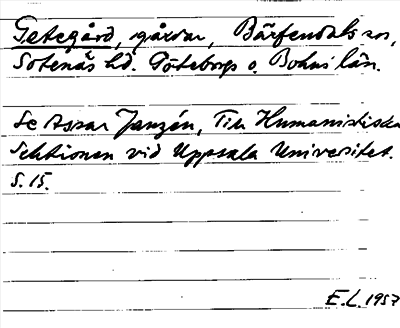 Getegård, gårdar, Bärfendals sn,
Sotenäs hd. Göteborgs o. Bohus län.
Se Assar Janzén, Till Humanistiska
Sektionen vid Uppsala Universitet.
S. 15.
E.L. 1957